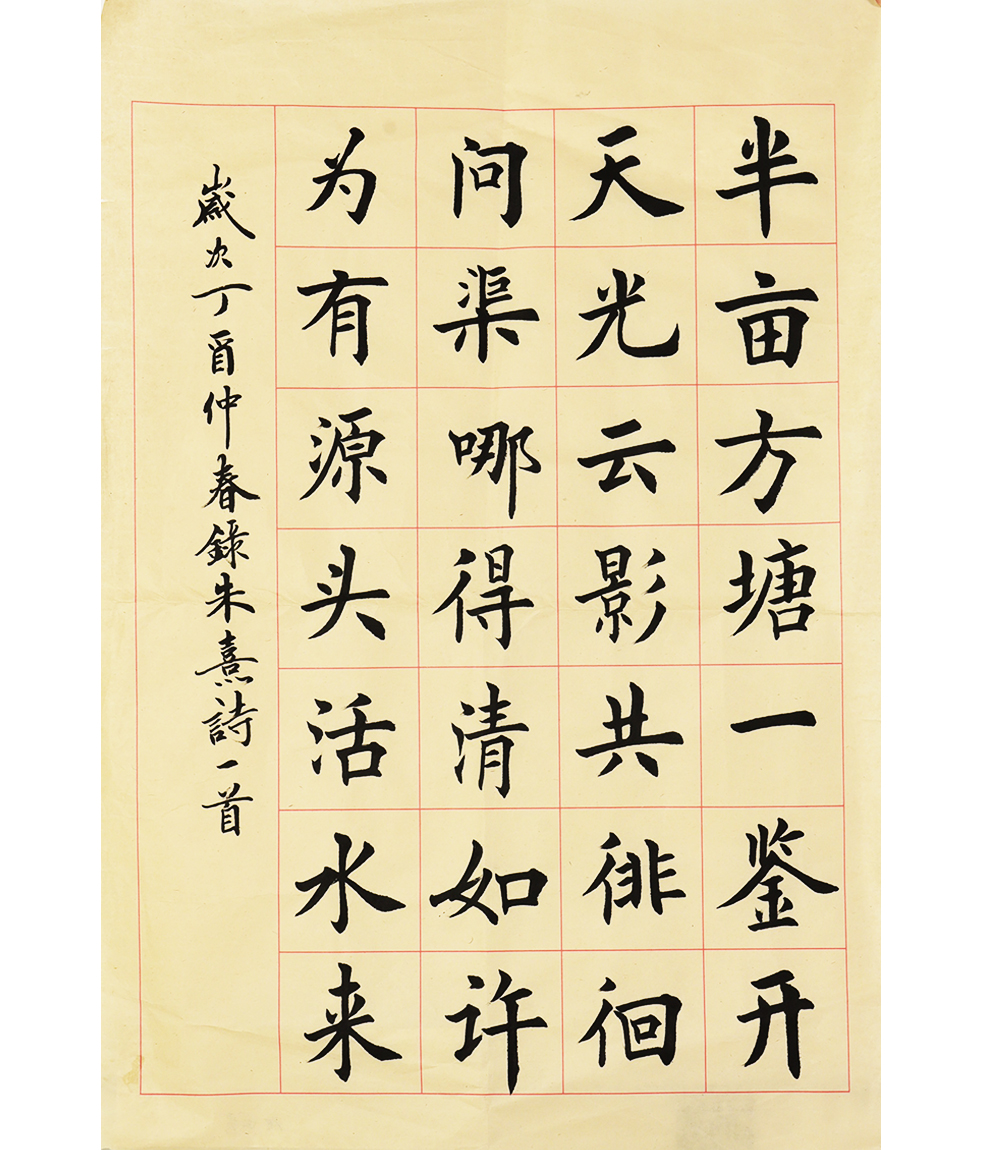 半亩方塘一鉴开
天光云影共徘徊
问渠哪得清如许
为有源头活水来
歲次丁酉仲春錄朱熹詩一首